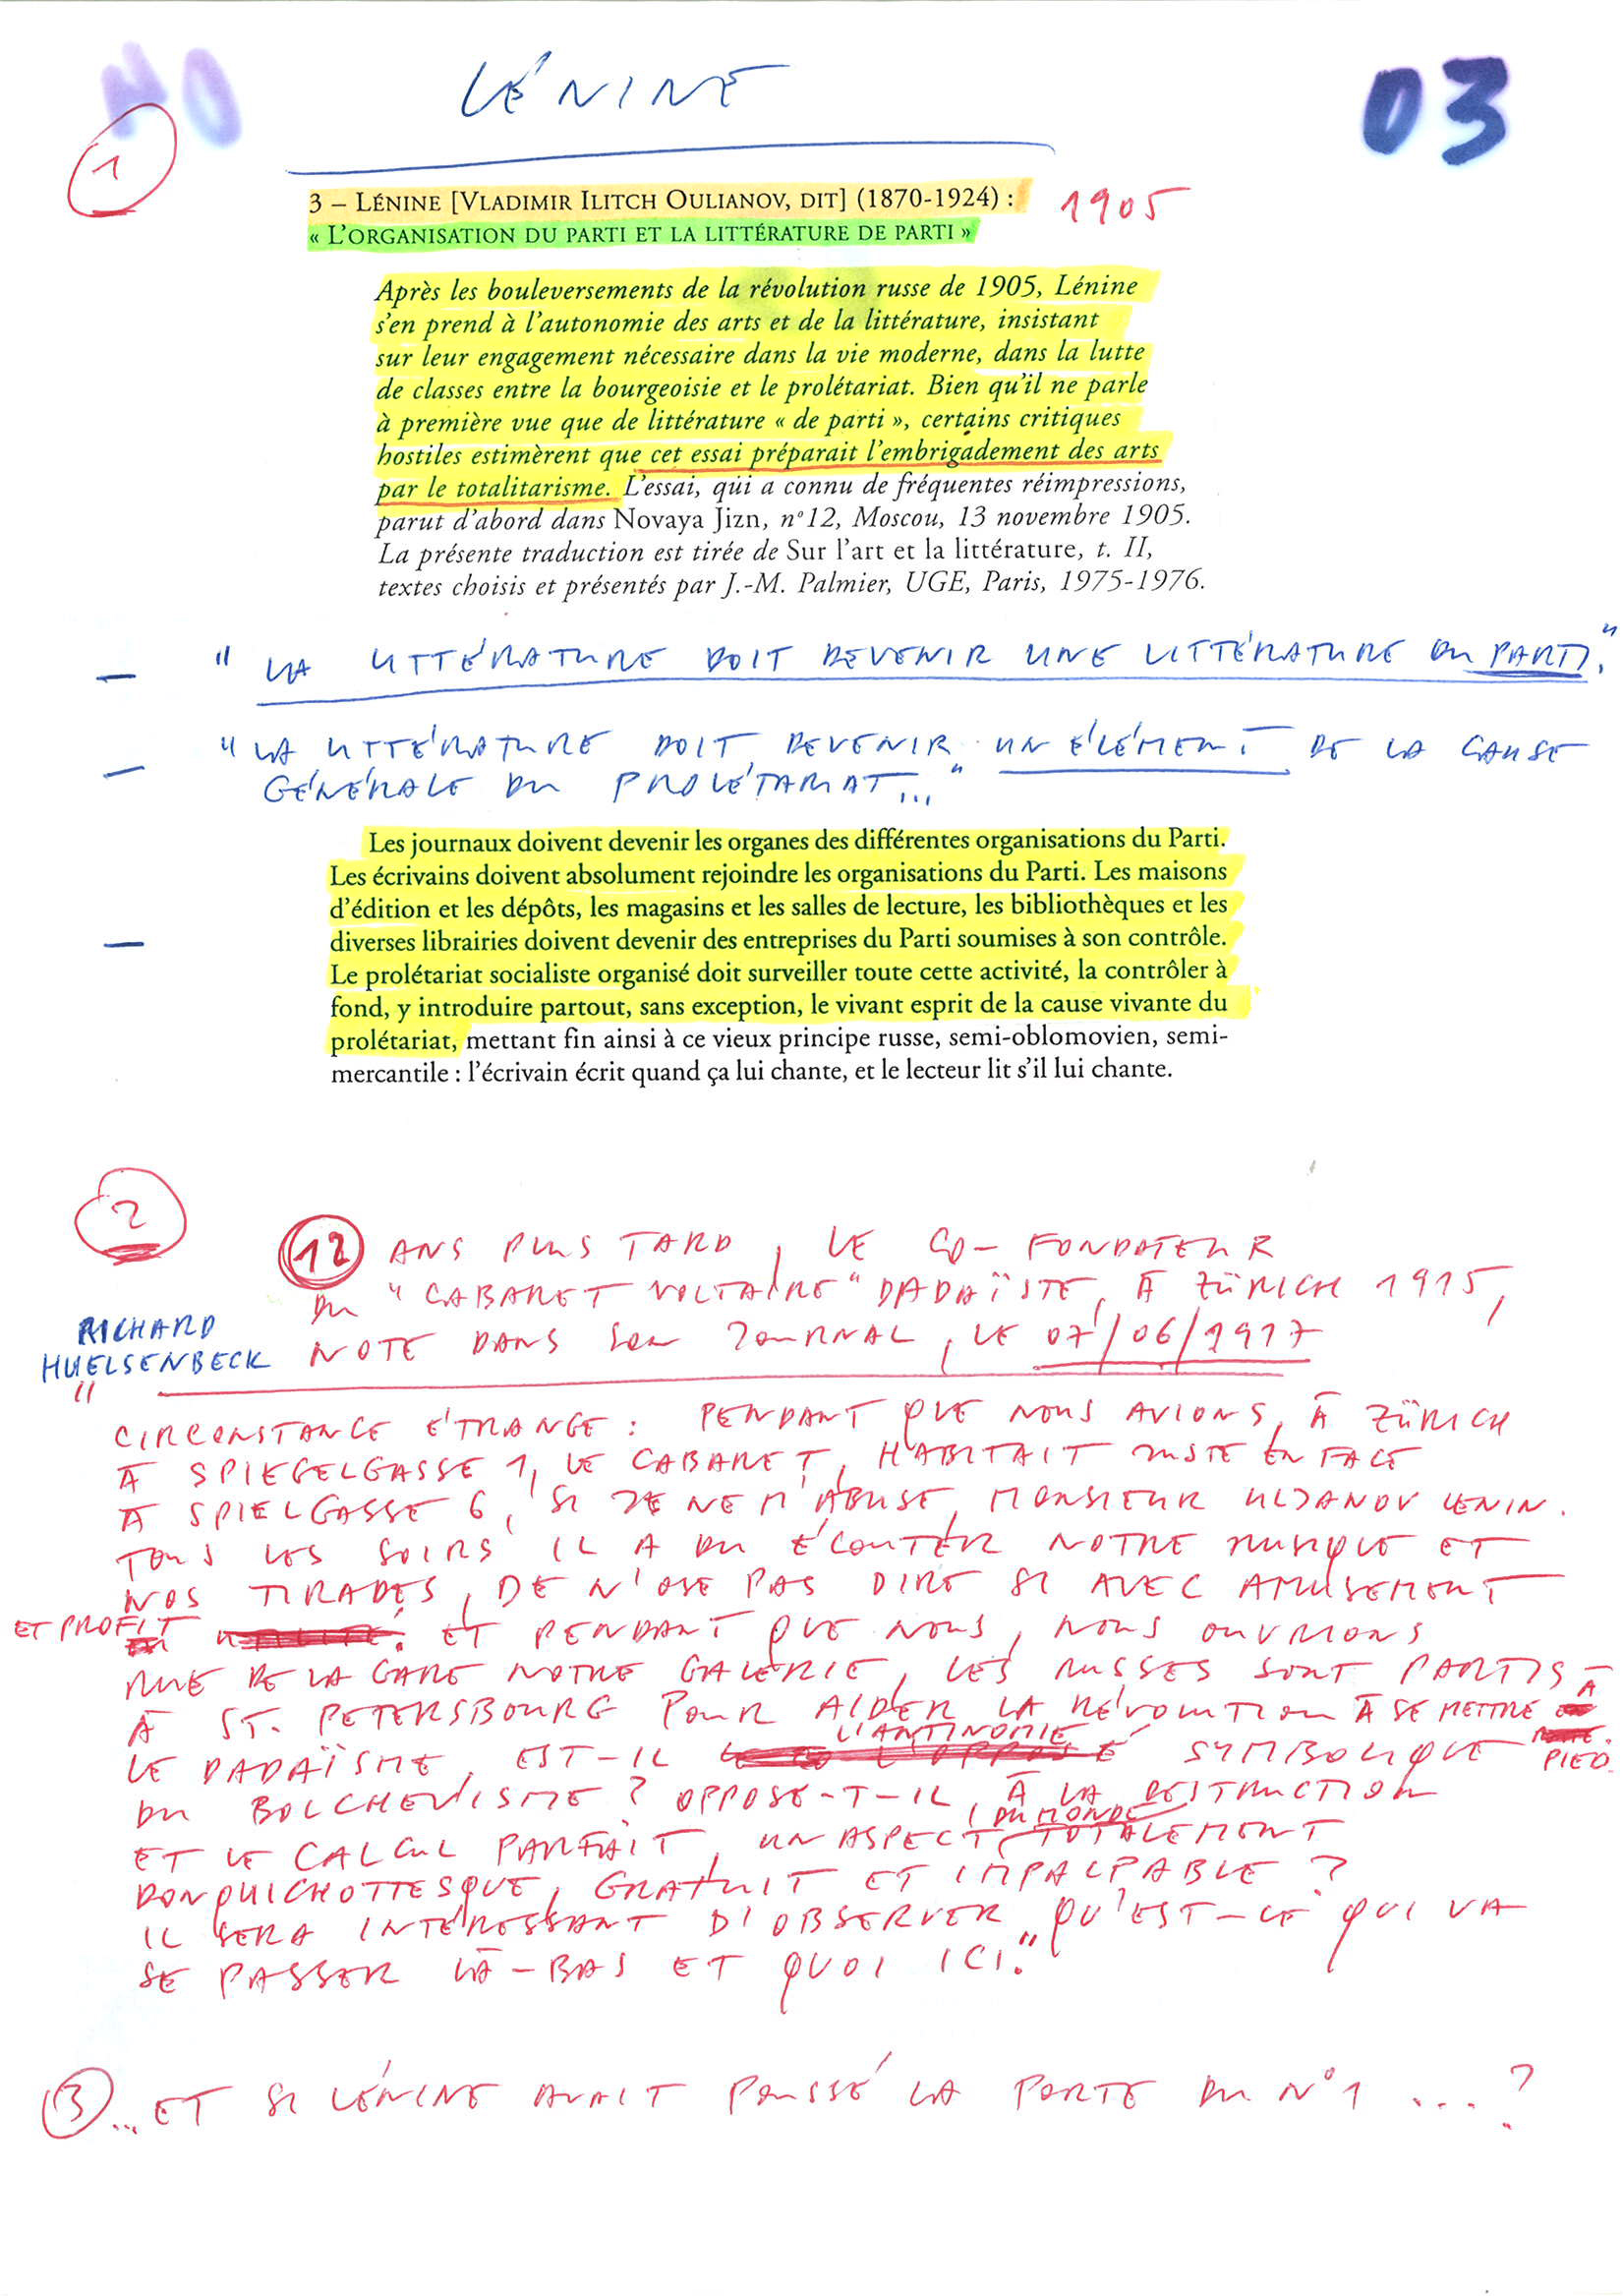 LÉNINE
03
1
3 – LÉNINE [VLADIMIR ILITCH OULIANOV, DIT] (1870-1924) : 1905
« L'ORGANISATION DU PARTI ET LA LITTÉRATURE DE PARTI »
Après les bouleversements de la révolution russe de 1905, Lénine
s'en prend à l'autonomie des arts et de la littérature, insistant
sur leur engagement nécessaire dans la vie moderne, dans la lutte
de classes entre la bourgeoisie et le prolétariat. Bien qu'il ne parle
à première vue que de littérature « de parti », certains critiques
hostiles estimèrent que cet essai préparait l'embrigadement des arts
par le totalitarisme. L'essai, qui a connu de fréquentes réimpressions,
parut d'abord dans Novaya Jizn, n°12, Moscou, 13 novembre 1905.
La présente traduction est tirée de Sur l'art et la littérature, t. II,
textes choisis et présentés par J.-M. Palmier, UGE, Paris, 1975-1976.
— " LA LITTÉRATURE DOIT DEVENIR UNE LITTÉRATURE DU PARTI."
— "LA LITTÉRATURE DOIT DEVENIR UN ÉLÉMENT DE LA CAUSE
GÉNÉRALE DU PROLÉTARIAT..."
Les journaux doivent devenir les organes des différentes organisations du Parti.
Les écrivains doivent absolument rejoindre les organisations du Parti. Les maisons
d'édition et les dépôts, les magasins et les salles de lecture, les bibliothèques et les
— diverses librairies doivent devenir des entreprises du Parti soumises à son contrôle.
Le prolétariat socialiste organisé doit surveiller toute cette activité, la contrôler à
fond, y introduire partout, sans exception, le vivant esprit de la cause vivante du
prolétariat, mettant fin ainsi à ce vieux principe russe, semi-oblomovien, semi-
mercantile : l'écrivain écrit quand ça lui chante, et le lecteur lit s'il lui chante.
2
12 ANS PLUS TARD, LE CO-FONDATEUR
DU "CABARET VOLTAIRE" DADAÏSTE, À ZÜRICH 1915,
RICHARD
HUELSENBECK
NOTE DANS SON JOURNAL, LE 07/06/1917
"
CIRCONSTANCE ÉTRANGE : PENDANT QUE NOUS AVIONS, À ZÜRICH
À SPIEGELGASSE 1, LE CABARET, HABITAIT JUSTE EN FACE
À SPIELGASSE 6, SI JE NE M'ABUSE, MONSIEUR ULJANOV LENIN.
TOUS LES SOIRS IL A DU ÉCOUTER NOTRE MUSIQUE ET
NOS TIRADES, DE N'OSE PAS DIRE SI AVEC AMUSEMENT
ET PROFIT. ET PENDANT QUE NOUS, NOUS OUVRIONS
RUE DE LA GARE NOTRE GALERIE, LES RUSSES SONT PARTIS
À ST. PETERSBOURG POUR AIDER LA RÉVOLUTION À SE METTRE À
PIED.
LE DADAÏSME, EST-IL L'ANTINOMIE SYMBOLIQUE
DU BOLCHEVISME ? OPPOSE-T-IL, À LA DESTRUCTION
ET LE CALCUL PARFAIT, UN ASPECT DU MONDE TOTALEMENT
DONQUICHOTTESQUE, GRATUIT ET IMPALPABLE ?
IL SERA INTÉRESSANT D'OBSERVER QU'EST-CE QUI VA
SE PASSER LÀ-BAS ET QUOI ICI."
3 ... ET SI LÉNINE AVAIT POUSSÉ LA PORTE DU N°1 ....?